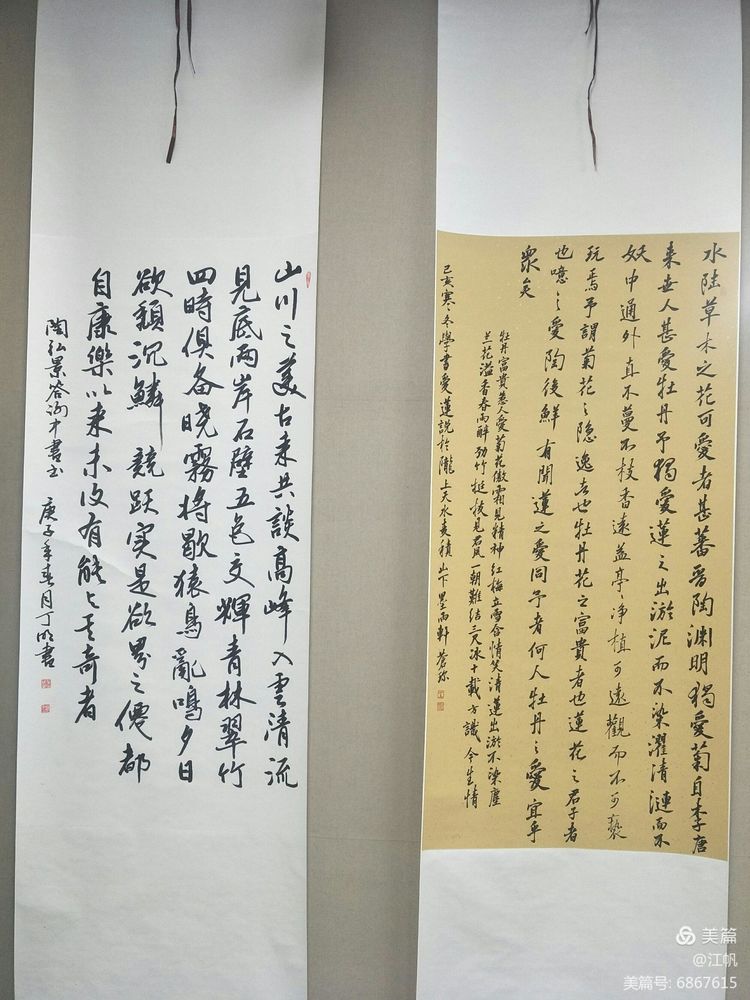 水陸草木之花可愛者甚蕃晋陶渊明獨愛菊自李唐
来世人甚愛牡丹予獨愛蓮之出淤泥而不染濯清漣而不
妖中通外直不蔓不枝香遠益亭亭净植可遠觀而不可褻
玩焉予謂菊花之隐逸者也牡丹花之富貴者也蓮花之君子者
也噫之愛陶後鮮有聞蓮之愛同予者何人牡丹之愛宜乎
衆矣
牡丹富貴惹人愛菊花傲霜見精神红梅立雪含情笑清蓮出淤不染塵
兰花溢香春雨醉劲竹挺拔見君风一朝難結三尺冰十載方識今生情
己亥寒冬學書愛蓮説於隴上天水麦積山下墨雨軒
山川之美古来共談高峰入雲清流
見底兩岸石壁五色交輝青林翠竹
四時俱备晓霧将歇猿鳥亂鳴夕日
欲頹沉鱗競跃实是欲界之僊都
自康樂以来未復有能与其奇者
陶弘景答谢中書书 庚子年春月丁明書
美篇
@江帆
美篇号: 6867615